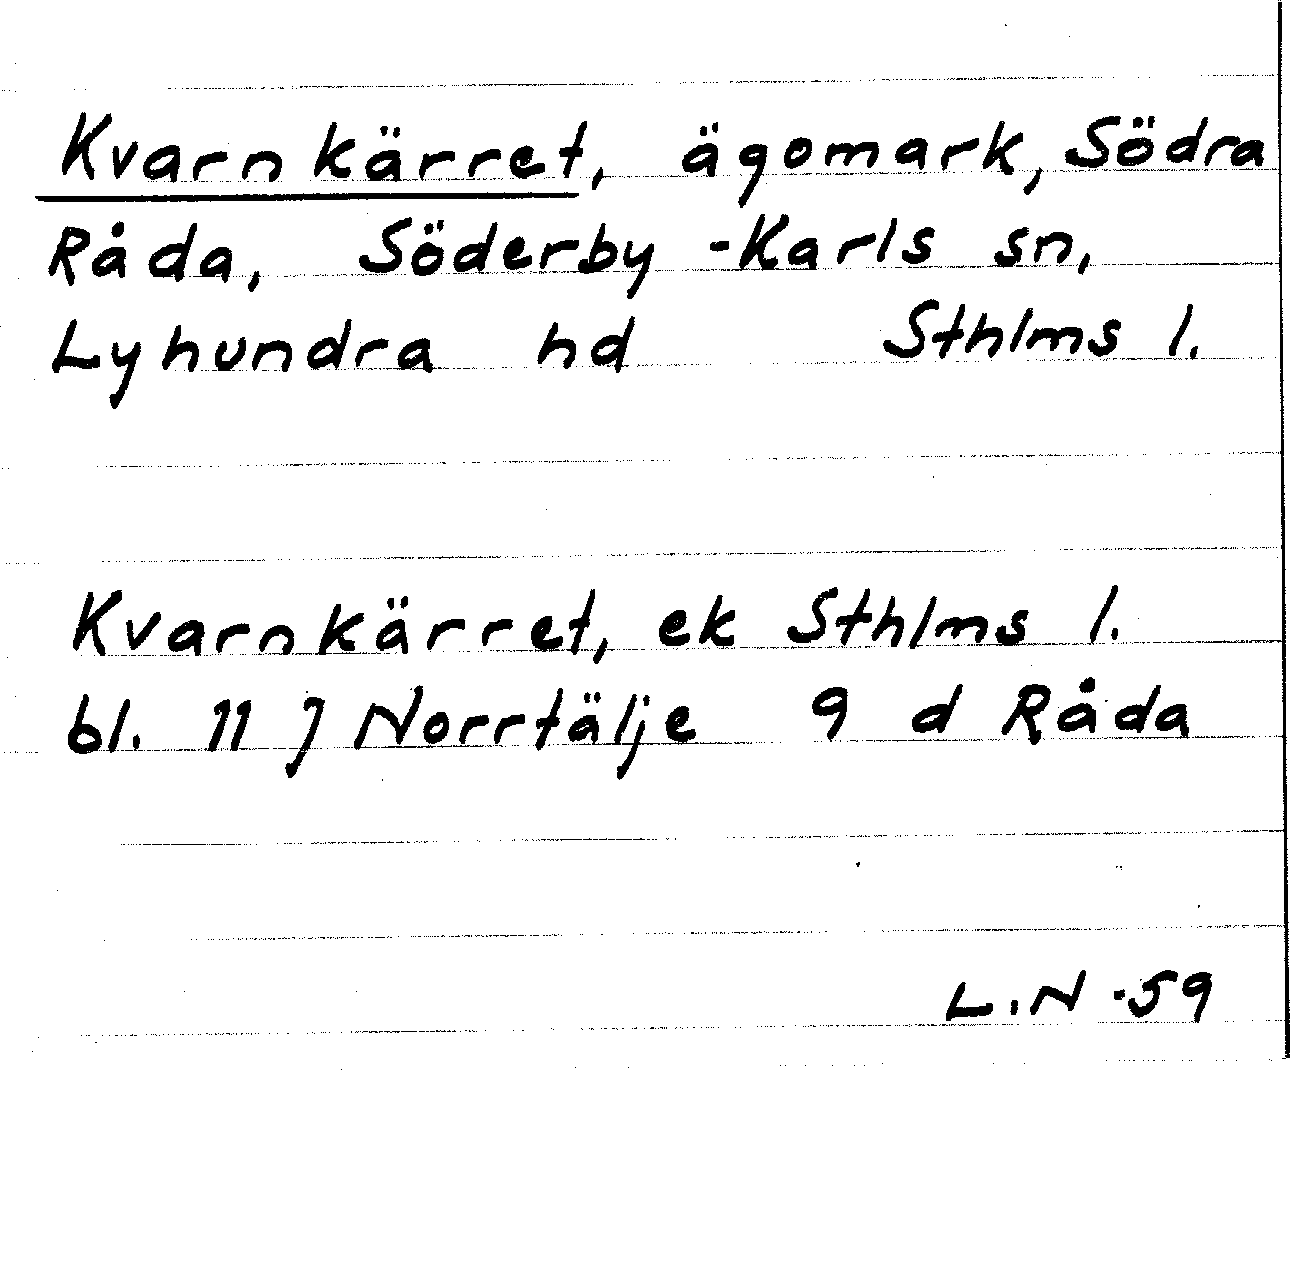 Kvarnkärret, ägomark, Södra
Råda, Söderby-Karls sn,
Lyhundra hd Sthlms l.
Kvarnkärret, ek Sthlms l.
bl. 11 J Norrtälje 9 d Råda
L.N -59